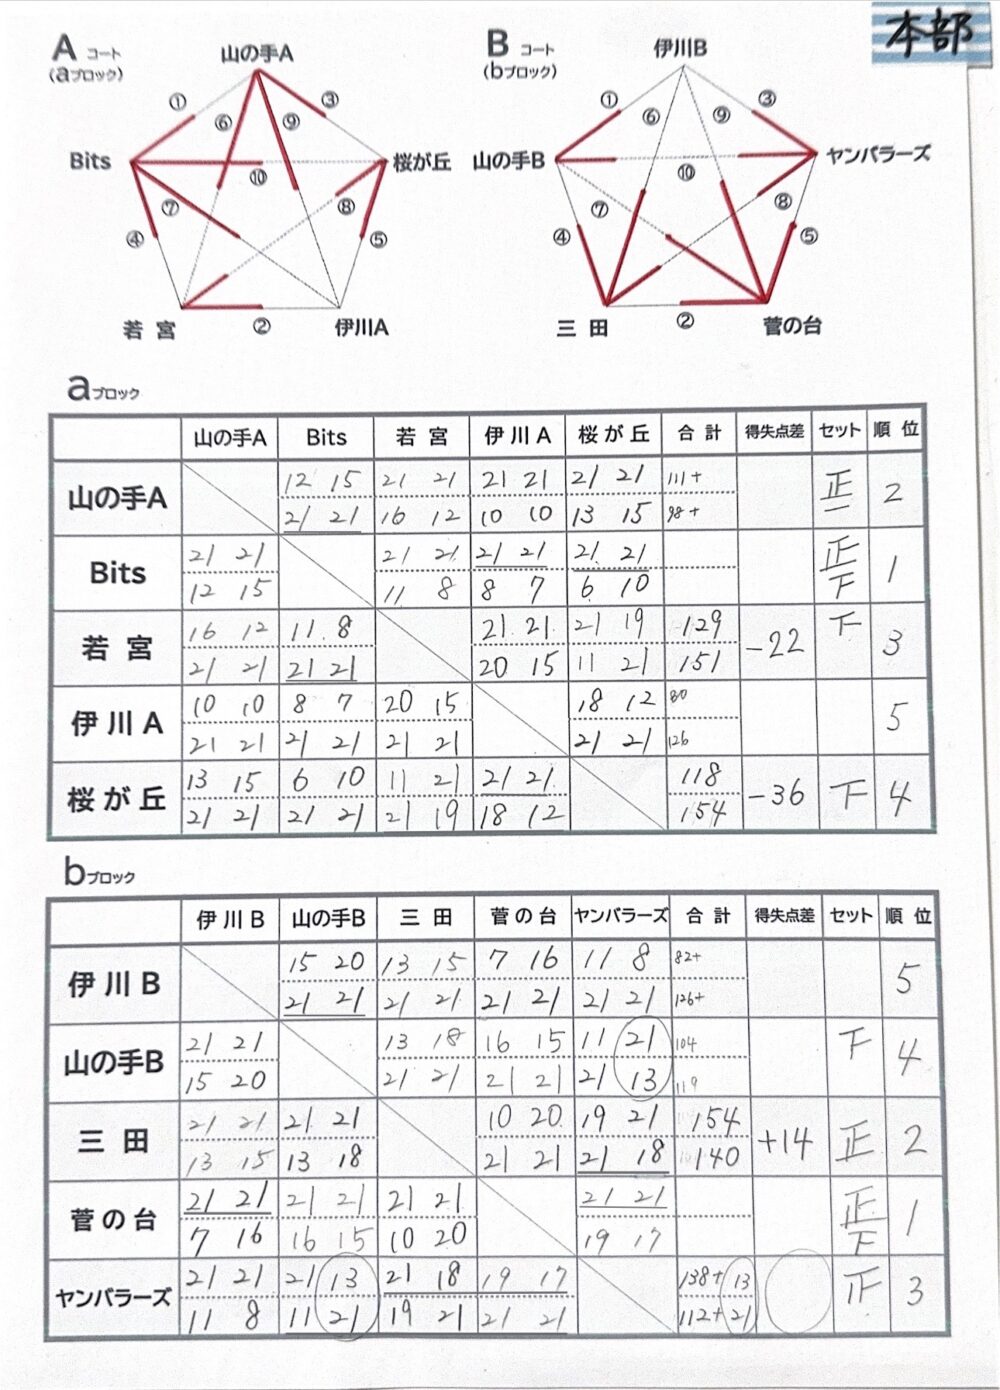 本部
A コート
(aブロック)
山の手A
① ③
⑥ ⑨
Bits 桜が丘
⑩
⑦ ⑧
④ ⑤
若宮 ② 伊川A
B コート
(bブロック)
伊川B
① ③
⑥ ⑨
山の手B ヤンバラーズ
⑩
⑦ ⑧
④ ⑤
三田 ② 菅の台
aブロック
山の手A Bits 若宮 伊川A 桜が丘 合計 得失点差 セット 順位
山の手A 12 15 21 21 21 21 21 21 111+ 正一 2
21 21 16 12 10 10 13 15 98+
Bits 21 21 21 21 21 21 21 21 正下 1
12 15 11 8 8 7 6 10
若宮 16 12 11 8 21 21 21 19 129 -22 下 3
21 21 21 21 20 15 11 21 151
伊川A 10 10 8 7 20 15 18 12 80 5
21 21 21 21 21 21 21 21 126
桜が丘 13 15 6 10 11 21 21 21 118 -36 下 4
21 21 21 21 21 19 18 12 154
bブロック
伊川B 山の手B 三田 菅の台 ヤンバラーズ 合計 得失点差 セット 順位
伊川B 15 20 13 15 7 16 11 8 82+ 5
21 21 21 21 21 21 21 21 126+
山の手B 21 21 13 18 16 15 11 21 104 下 4
15 20 21 21 21 21 21 13 119
三田 21 21 21 21 10 20 19 21 154 +14 正 2
13 15 13 18 21 21 21 18 140
菅の台 21 21 21 21 21 21 21 21 正下 1
7 16 16 15 10 20 19 17
ヤンバラーズ 21 21 21 13 21 18 19 17 138+13 3
11 8 11 21 19 21 21 21 112+21